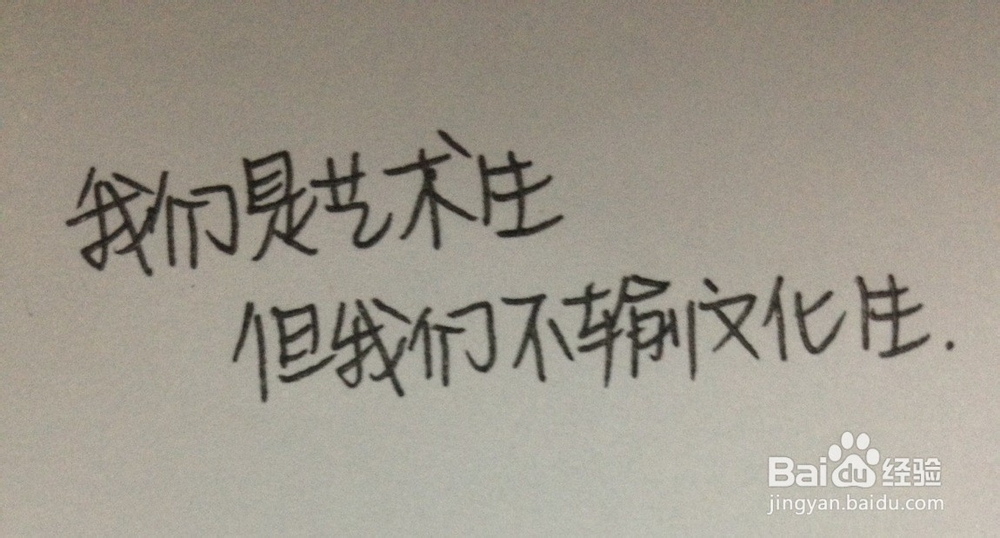 我们是艺术生
但我们不输文化生.
Baidu经验
jingyan.baidu.com